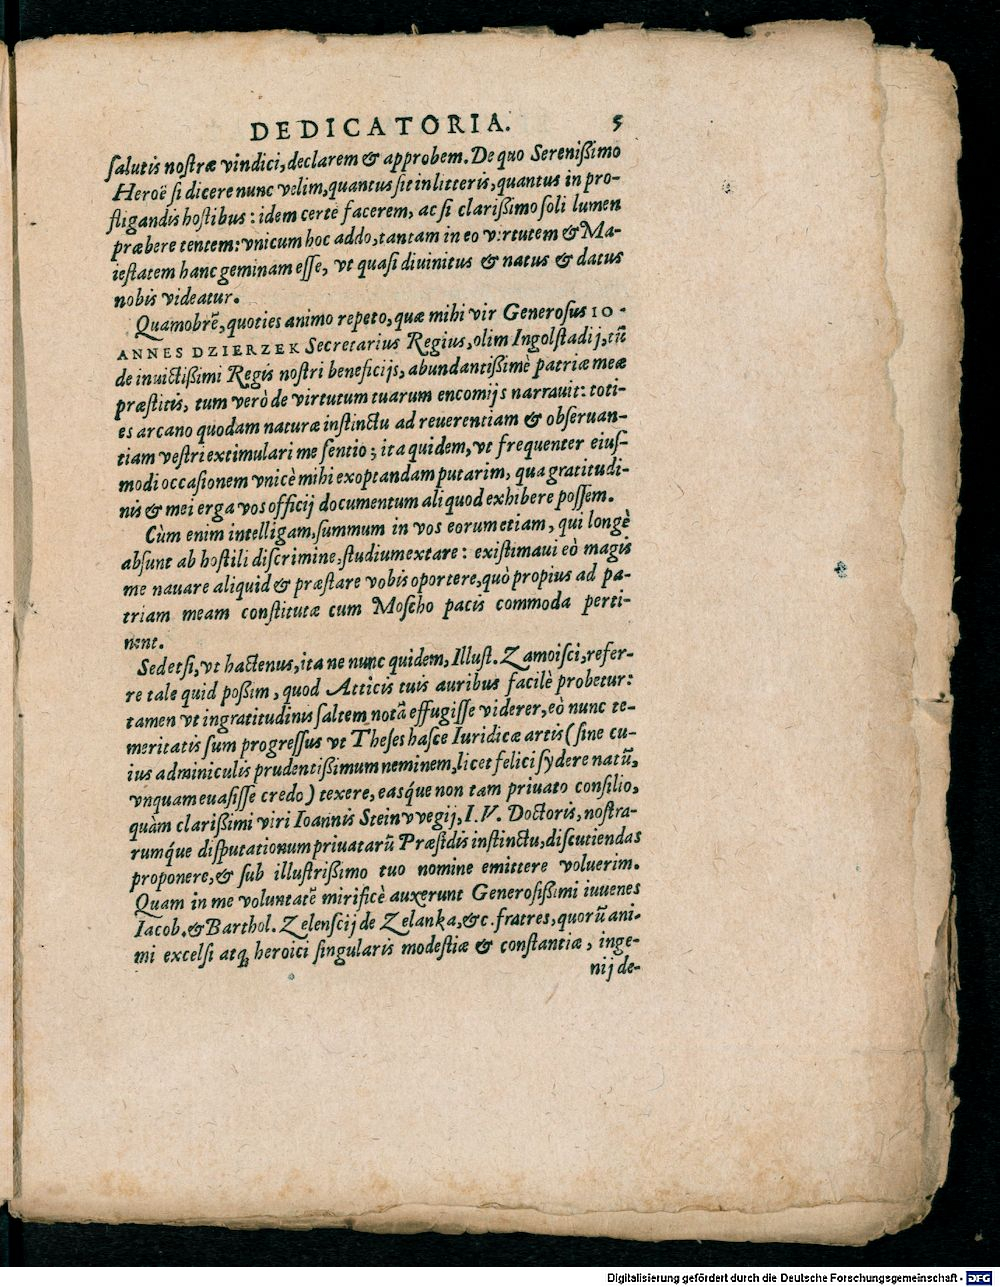 DEDICATORIA. 5
salutis nostræ vindici, declarem & approbem. De quo Sereniſſimo
Heroë ſi dicere nunc velim, quantus ſit in litteris, quantus in pro-
fligandis hoſtibus: idem certè facerem, ac ſi clariſſimo ſoli lumen
præbere tentem: vnicum hoc addo, tantam in eo virtutem & Ma-
ieſtatem hanc geminam eſſe, vt quaſi diuinitus & natus & datus
nobis videatur.
Quamobrē, quoties animo repeto, quæ mihi vir Generoſus IO-
ANNES DZIERZEK Secretarius Regius, olim Ingolſtadij, tū
de inuictiſſimi Regis noſtri beneficijs, abundantiſſimè patriæ meæ
præſtitis, tum verò de virtutum tuarum encomijs narrauit: toti-
es arcano quodam naturæ inſtinctu ad reuerentiam & obſeruan-
tiam veſtri extimulari me ſentio; ita quidem, vt frequenter eiuſ-
modi occaſionem vnicè mihi exoptandam putarim, qua gratitudi-
nis & mei erga vos officij documentum aliquod exhibere poſſem.
Cùm enim intelligam, ſummum in vos eorum etiam, qui longè
abſunt ab hoſtili diſcrimine, ſtudium extare: exiſtimaui eò magis
me nauare aliquid & præſtare vobis oportere, quò propius ad pa-
triam meam conſtitutæ cum Moſcho pacis commoda perti-
nent.
Sed etſi, vt hactenus, ita ne nunc quidem, Illuſt. Zamoiſci, refer-
re tale quid poſſim, quod Atticis tuis auribus facilè probetur:
tamen vt ingratitudinis ſaltem notā effugiſſe viderer, eò nunc te-
meritatis ſum progreſſus vt Theſes haſce Iuridicæ artis (ſine cu-
ius adminiculis prudentiſſimum neminem, licet felici ſydere natū,
vnquam euaſiſſe credo) texere, eásque non tam priuato conſilio,
quàm clariſſimi viri Ioannis Steinvvegij, I. V. Doctoris, noſtra-
rumq́ue diſputationum priuatarū Præſidis inſtinctu, diſcutiendas
proponere, & ſub illuſtriſſimo tuo nomine emittere voluerim.
Quam in me voluntatē mirificè auxerunt Generoſiſſimi iuuenes
Iacob. & Barthol. Zelenſcij de Zelanka, &c. fratres, quorū ani-
mi excelſi atq; heroici ſingularis modeſtiæ & conſtantiæ, inge-
nij de-
Digitalisierung gefördert durch die Deutsche Forschungsgemeinschaft - DFG